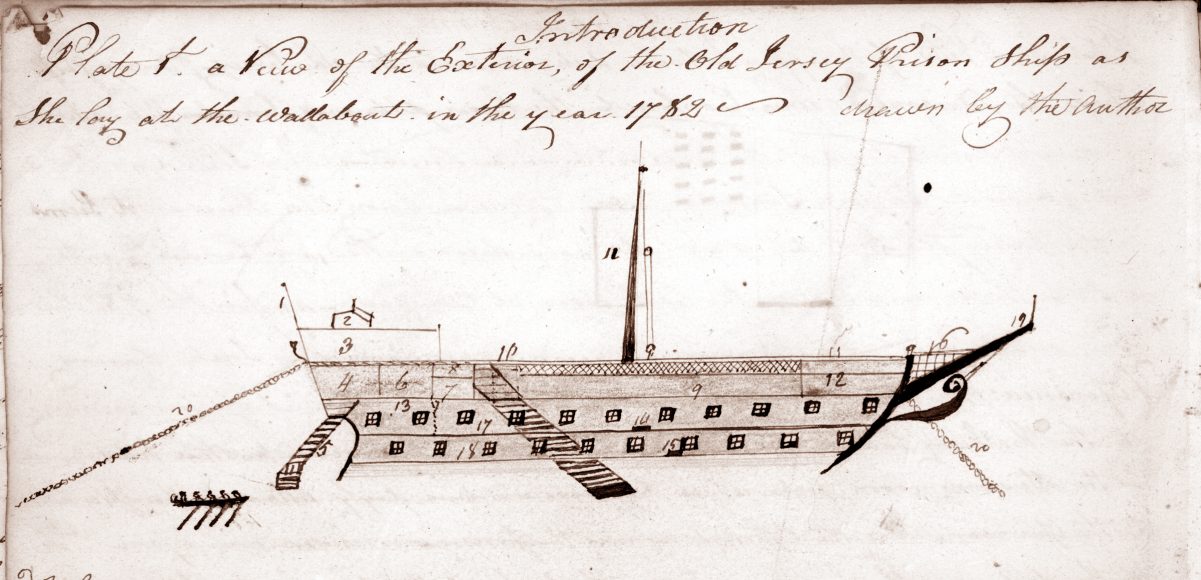 Introduction
Plate 1. a View of the Exterior, of the Old Jersey Prison Ship as
She lay at the Wallabout in the year 1782 drawn by the Author
11
1
2
19
3
10
9
11
9
16
4
6
8
7
9
12
13
20
17
14
5
18
15
20